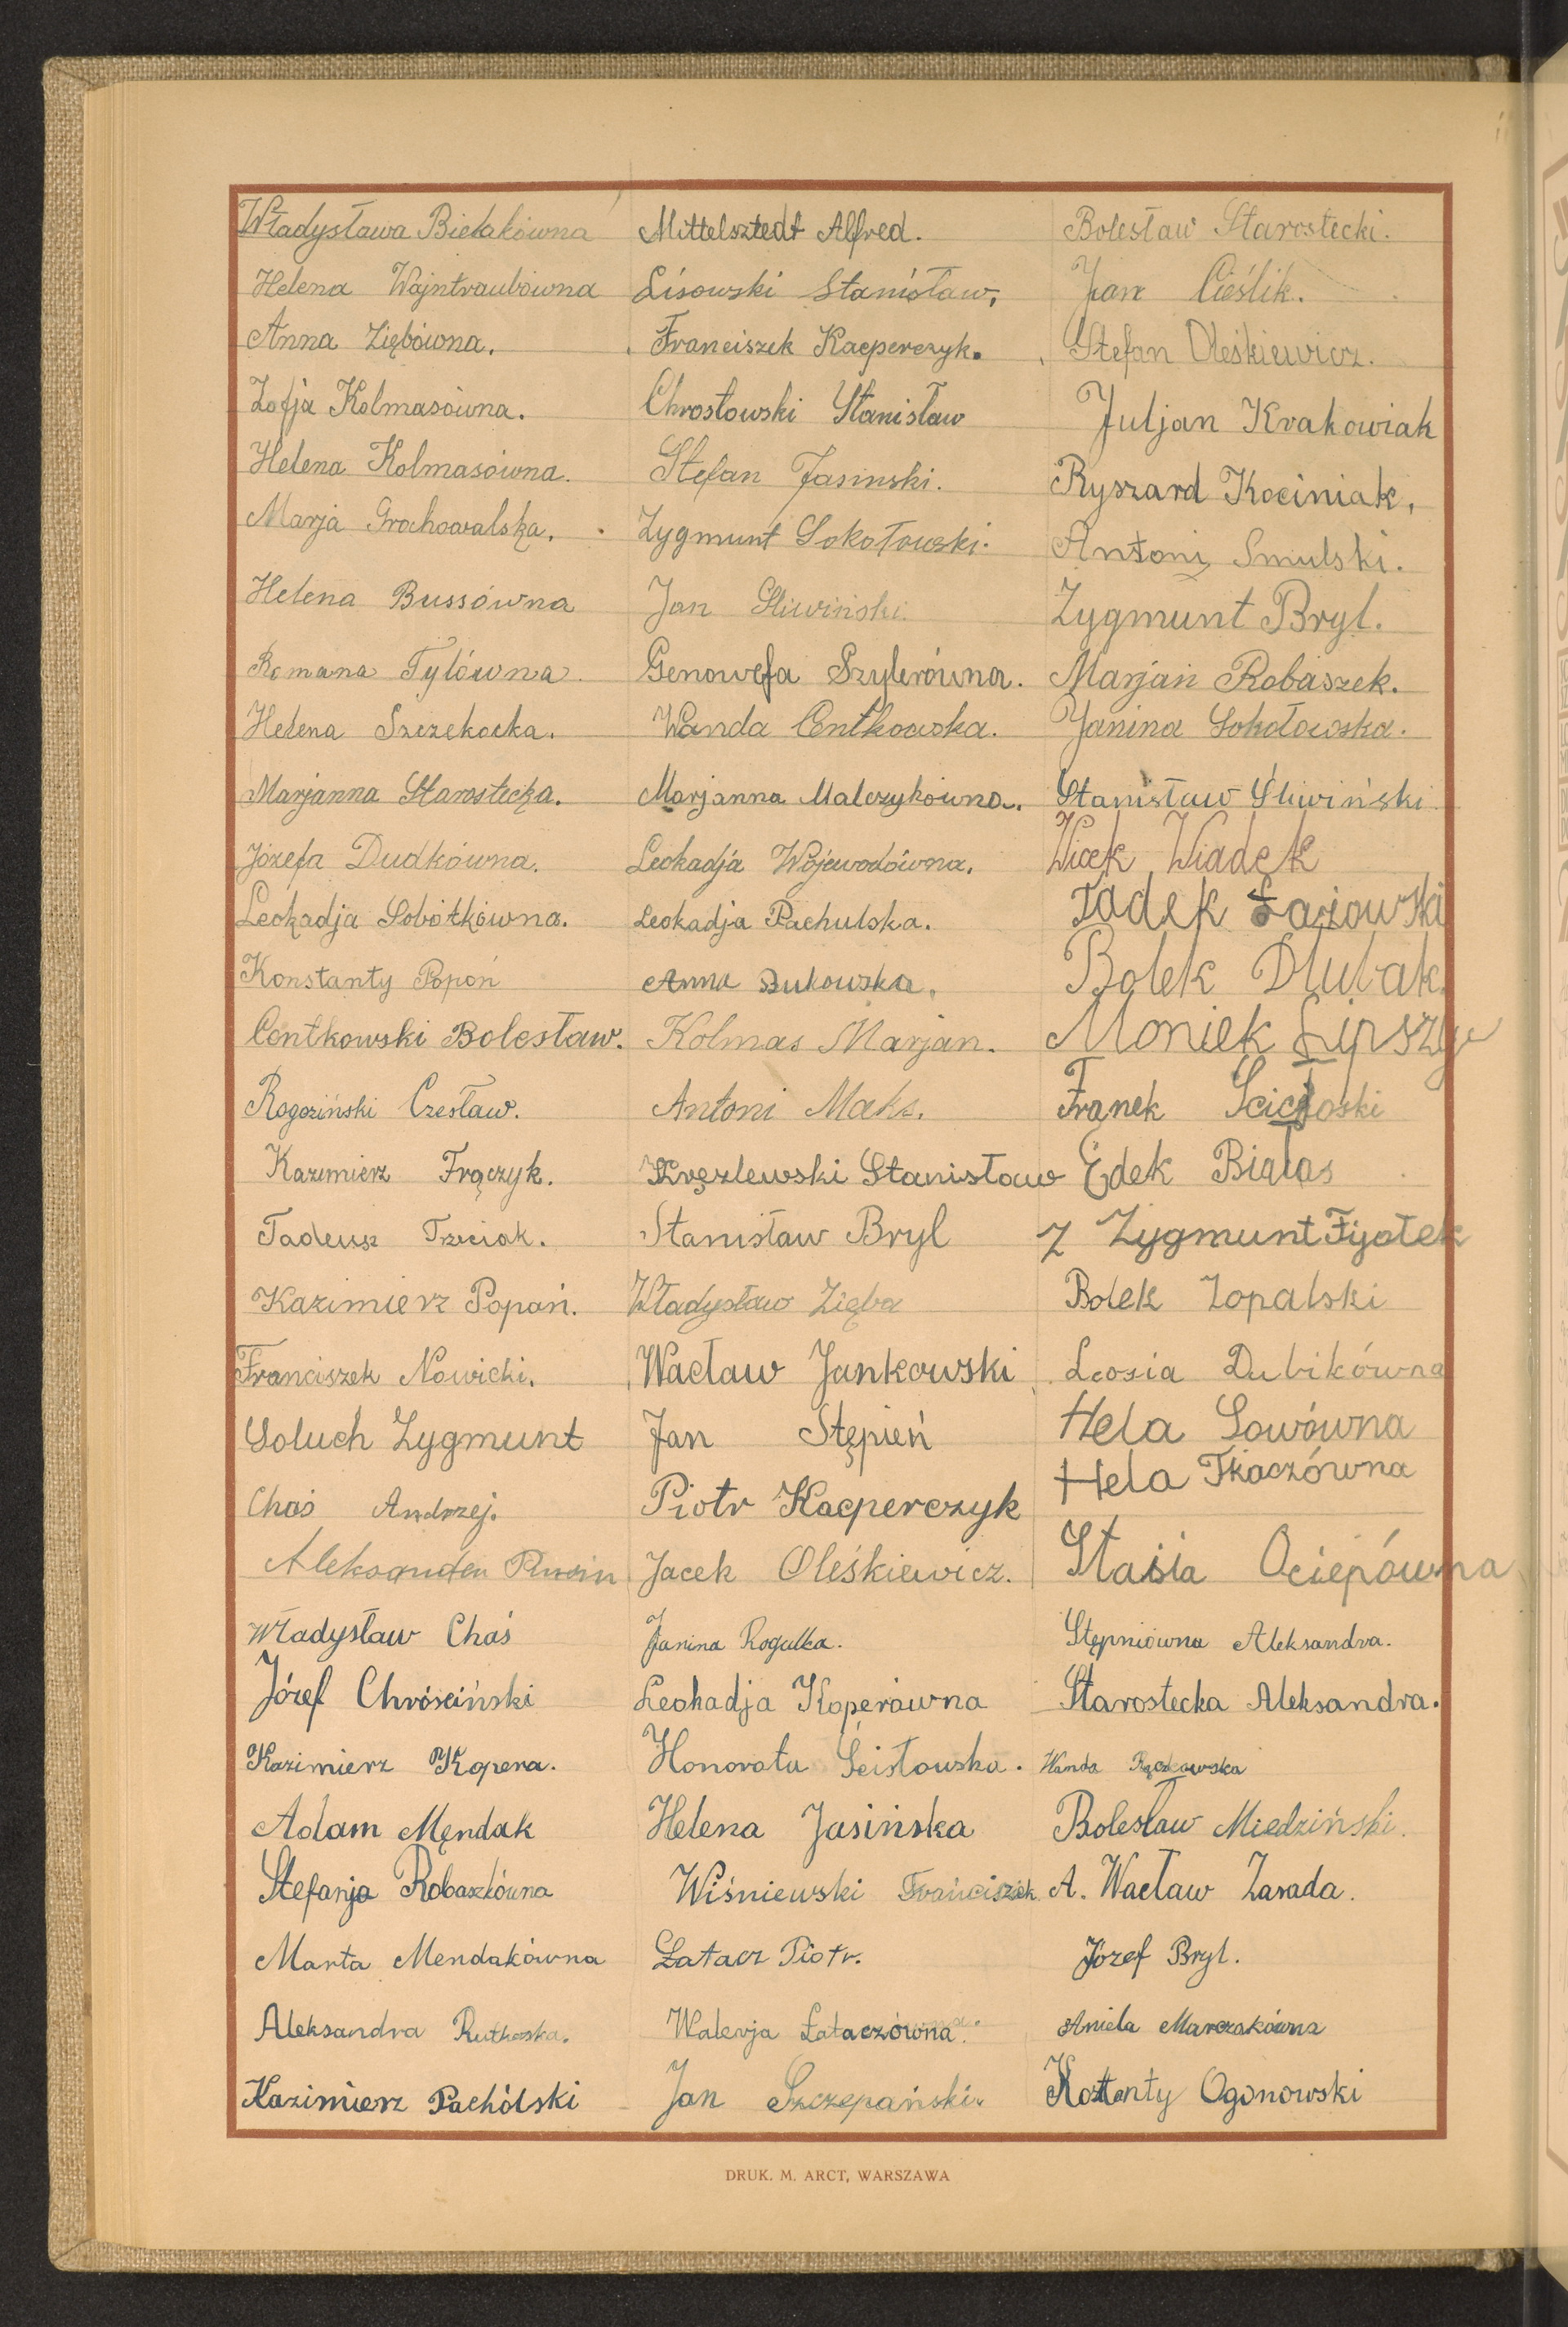 Władysława Bielakówna
Helena Wajntraubówna
Anna Ziębówna.
Zofja Kolmasówna.
Helena Kolmasówna.
Marja Grochowalska.
Helena Bussówna
Romana Tylówna.
Helena Szczekocka.
Marjanna Starostecka.
Józefa Dudkówna.
Leokadja Sobótkówna.
Konstanty Popoń
Centkowski Bolesław.
Rogoziński Czesław.
Kazimierz Frączyk.
Tadeusz Trzeciak.
Kazimierz Popań.
Franciszek Nowicki.
Soluch Zygmunt
Chaś Andrzej.
Aleksander
Władysław Chaś
Józef Chróściński
Kazimierz Kopera.
Adam Mendak
Stefanja Robaszkówna
Marta Mendakówna
Aleksandra Rutkoska.
Kazimierz Pachólski
Mittelsztedt Alfred.
Lisowski Stanisław,
Franciszek Kacperczyk.
Chrostowski Stanisław
Stefan Jasinski.
Zygmunt Sokołowski.
Jan Śliwiński.
Genowefa Szylerówna.
Wanda Centkowska.
Marjanna Malczykówna.
Leokadja Wojewodówna.
Leokadja Pachulska.
Anna Żukowska.
Kolmas Marjan.
Antoni Maks.
Kręzlewski Stanisław
Stanisław Bryl
Władysław Zięba
Wacław Jankowski
Jan Stępień
Piotr Kacperczyk
Jacek Oleśkiewicz.
Janina Rogulka.
Leokadja Koperówna
Honorata Ścisłowska.
Helena Jasińska
Wiśniewski Franciszek
Łatacz Piotr.
Walerja Łataczówna.
Jan Szczepański.
Bolesław Starostecki.
Jan Cieślik.
Stefan Oleśkiewicz.
Juljan Krakowiak
Ryszard Kociniak.
Antoni Smulski.
Zygmunt Bryl.
Marjan Robaszek.
Janina Sokołowska.
Stanisław Śliwiński
Wicek Wiadek
Tadek Łazowski
Bolek Dłubak.
Moniek Lipszyc
Franek
Edek Białas
Z Zygmunt Fijołek
Bolek Zopalski
Leosia Dubikówna
Hela Sowówna
Hela Tkaczówna
Stasia Ociepówna
Stępniówna Aleksandra.
Starostecka Aleksandra.
Wanda
Bolesław Miedziński.
A. Wacław Zasada.
Józef Bryl.
Aniela Marczakówna
Ogonowski
DRUK. M. ARCT, WARSZAWA